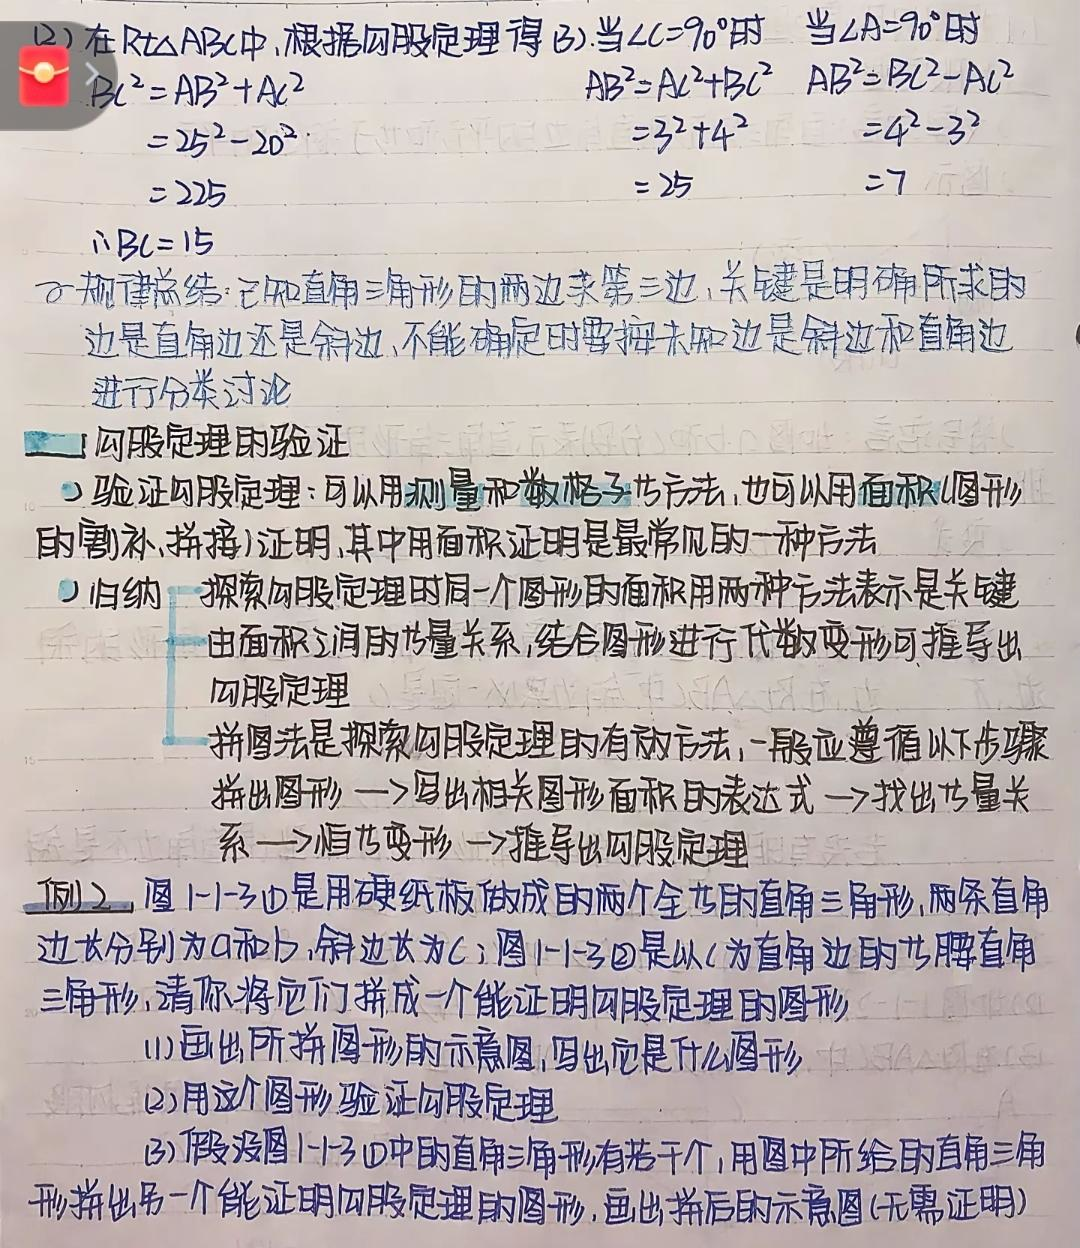 (2) 在Rt△ABC中,根据勾股定理得 (3).当∠C=90°时 当∠A=90°时
BC²=AB²+AC² AB²=AC²+BC² AB²=BC²-AC²
=25²-20² =3²+4² =4²-3²
=225 =25 =7
∴BC=15
规律总结:已知直角三角形的两边求第三边,关键是明确所求的
边是直角边还是斜边,不能确定时要按未知边是斜边和直角边
进行分类讨论
勾股定理的验证
验证勾股定理:可以用测量和数格子等方法,也可以用面积(图形
的割补、拼接)证明,其中用面积证明是最常见的一种方法
归纳 探索勾股定理时同一个图形的面积用两种方法表示是关键
由面积之间的等量关系,结合图形进行代数变形可推导出
勾股定理
拼图法是探索勾股定理的有效方法,一般应遵循以下步骤
拼出图形→写出相关图形面积的表达式→找出等量关
系→恒等变形→推导出勾股定理
例2 图1-1-3①是用硬纸板做成的两个全等的直角三角形,两条直角
边长分别为a和b,斜边长为c;图1-1-3②是以c为直角边的等腰直角
三角形,请你将它们拼成一个能证明勾股定理的图形
(1)画出所拼图形的示意图,写出它是什么图形
(2)用这个图形验证勾股定理
(3)假设图1-1-3①中的直角三角形有若干个,用图中所给的直角三角
形拼出另一个能证明勾股定理的图形,画出拼后的示意图(无需证明)